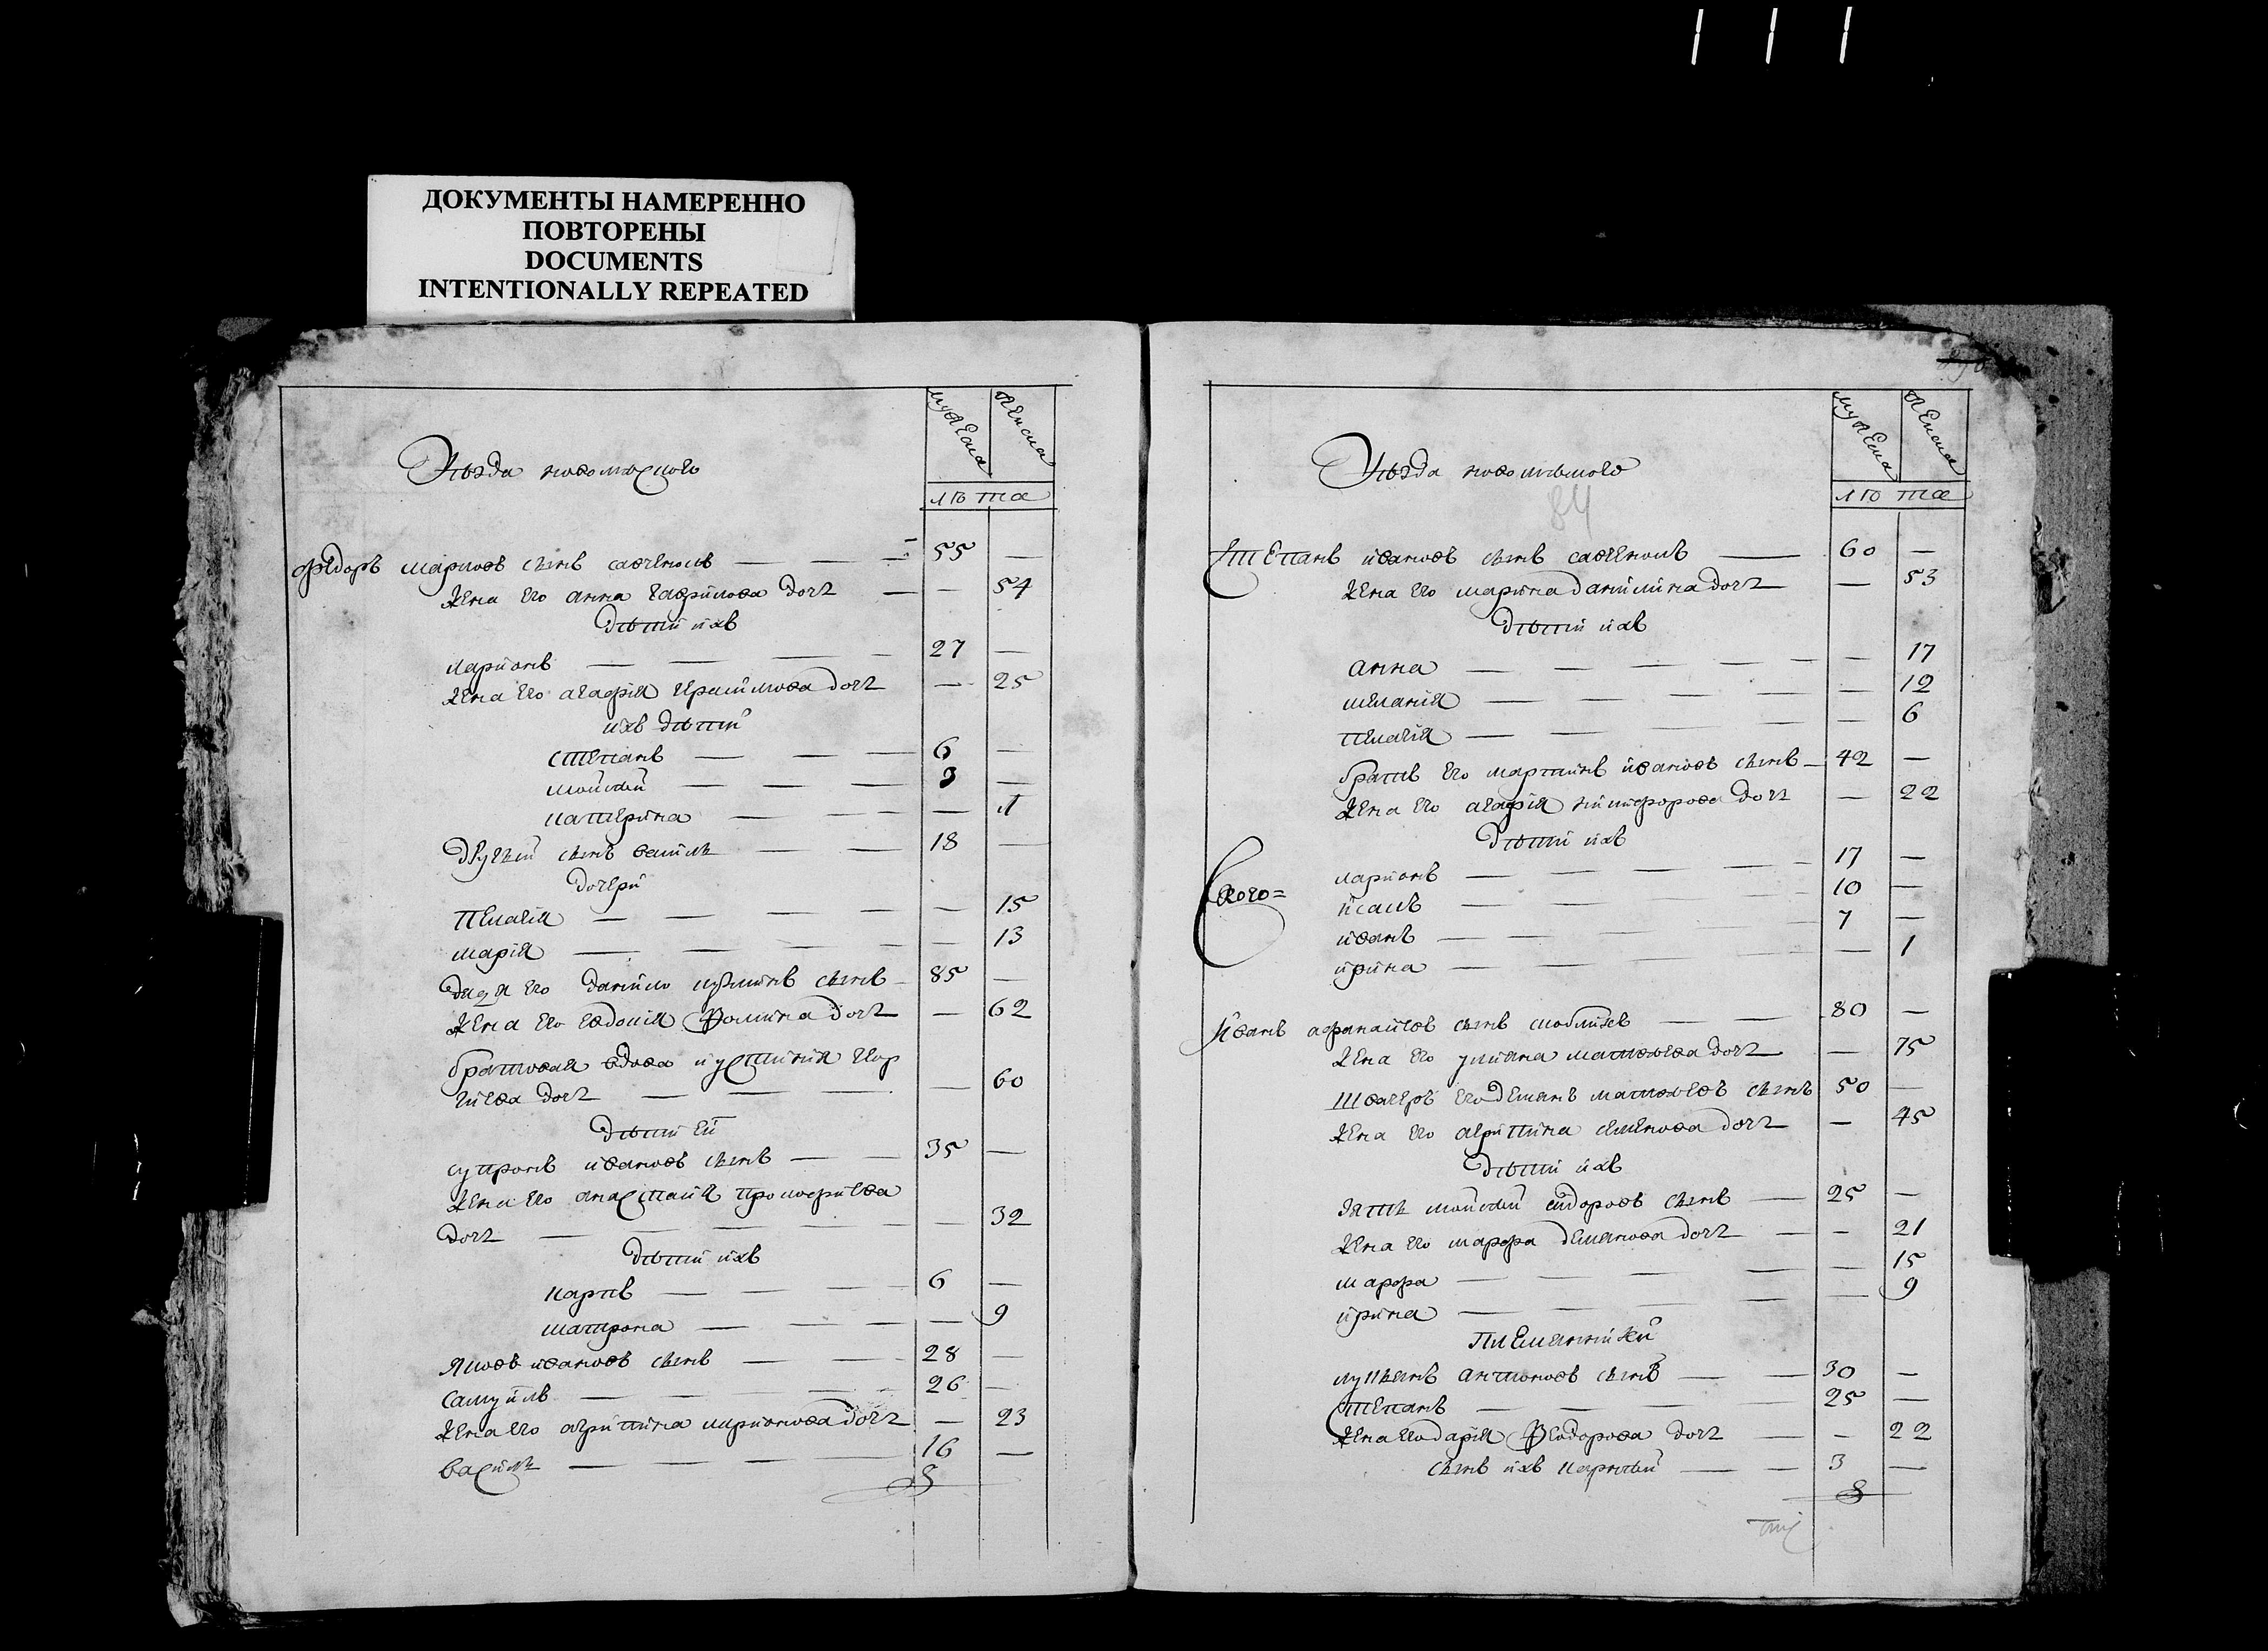 ДОКУМЕНТЫ НАМЕРЕННО
ПОВТОРЕНЫ
DOCUMENTS
INTENTIONALLY REPEATED
мужеска женска
Уезда новомеского
лѣта
Федоръ марковъ сынъ савченокъ — 55 —
жена его анна гаврилова дочь — — 54
дѣти ихъ
Ларионъ — 27 —
жена его агафия дочь — 25
ихъ дѣти
степанъ — 6 —
мойсей — 3 —
катерина — 1
другий сынъ василь — 18 —
дочери
пелагия — 15
мария — 13
дядя его данило сынъ — 85 —
жена его евдокия фомина дочь — 62
братовая вдова иустиния
дочь — 60
дѣти ей
супронъ ивановъ сынъ — 35 —
жена его анастасия прокофиева
дочь — 32
дѣти ихъ
карпъ — 6 —
матрона — 9
яковъ ивановъ сынъ — 28 —
самуйлъ — 26 —
жена его агрипина дочь — 23
василь — 16 —
мужеска женска
Уезда новомѣского
84
лѣта
Степанъ ивановъ сынъ савченокъ — 60 —
жена его марина данилина дочь — 53
дѣти ихъ
анна — 17
мелания — 12
пелагия — 6
братъ его мартинъ ивановъ сынъ — 42 —
жена его агафия никифорова дочь — 22
дѣти ихъ
ларионъ — 17 —
исакъ — 10 —
иванъ — 7 —
ирина — 1
Иванъ афанасиевъ сынъ — 80 —
жена его улияна матвѣева дочь — 75
швагеръ его демянъ матвѣевъ сынъ 50 —
жена его агрипина семенова дочь — 45
дѣти ихъ
зять мойсей сидоровъ сынъ — 25 —
жена его марфа демянова дочь — 21
марфа — 15
ирина — 9
племянники
лукянъ антоновъ сынъ — 30 —
степанъ — 25 —
жена его дария феодорова дочь — 22
сынъ ихъ корнѣй — 3 —